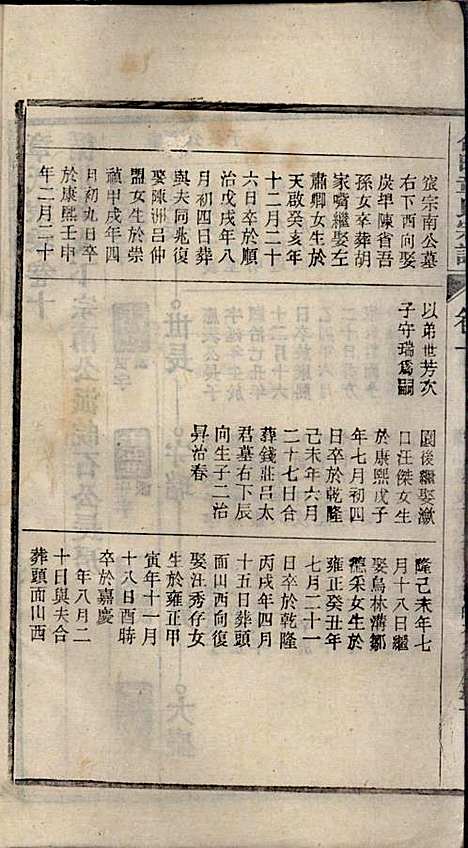 窆宗南公墓
右下西向娶
炭埠陳省吾
孫女卒葬胡
家嘴繼娶左
肅卿女生於
天啟癸亥年
十二月二十
六日卒於順
治戊戌年八
月初四日葬
與夫同兆復
娶陳洲呂仲
盟女生於崇
禎甲戌年四
月初九日卒
於康熙壬申
年二月二十
以弟世芳次
子守瑞爲嗣
園後繼娶漵
口汪傑女生
於康熙戊子
年七月初四
日卒於乾隆
己未年六月
二十七日合
葬錢莊呂太
君墓右下辰
向生子二治
昇治春
隆己未年七
月十八日繼
娶烏林溝鄒
德采女生於
雍正癸丑年
七月二十一
日卒於乾隆
丙戌年四月
十五日葬頭
面山西向復
娶汪秀存女
生於雍正甲
寅年十一月
十八日酉時
卒於嘉慶
年八月二
十日與夫合
葬頭面山西